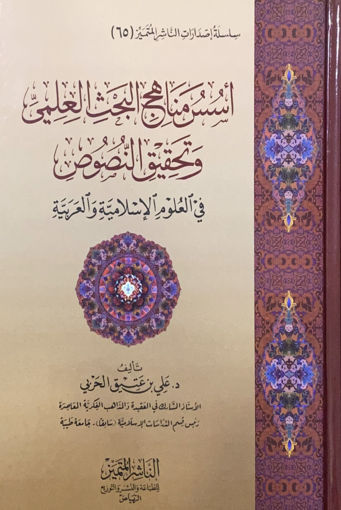 سلسلة إصدارات الناشر المتميز (٦٥)
أسس مناهج البحث العلمي
وتحقيق النصوص
في العلوم الإسلامية والعربية
تأليف
د. علي بن عتيق الحربي
الأستاذ المشارك في العقيدة والمذاهب الفكرية المعاصرة
رئيس قسم الدراسات الإسلامية (سابقا)، جامعة طيبة
الناشر المتميز
للطباعة والنشر والتوزيع
الرياض